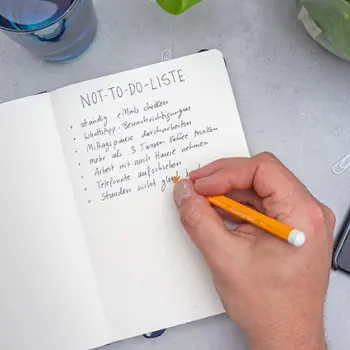 NOT-TO-DO-LISTE
• ständig eMails checken
• WhatsApp-Benachrichtigungen
• Mittagspause durcharbeiten
• mehr als 3 Tassen Kaffee trinken
• Arbeit mit nach Hause nehmen
• Telefonate aufschieben
• Stunden nicht